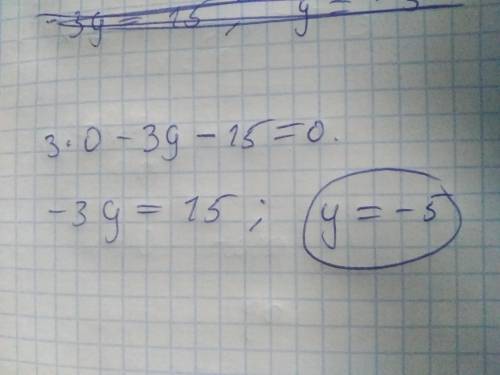 -3y = 15,
3·0 - 3y - 15 = 0.
-3y = 15; y = -5